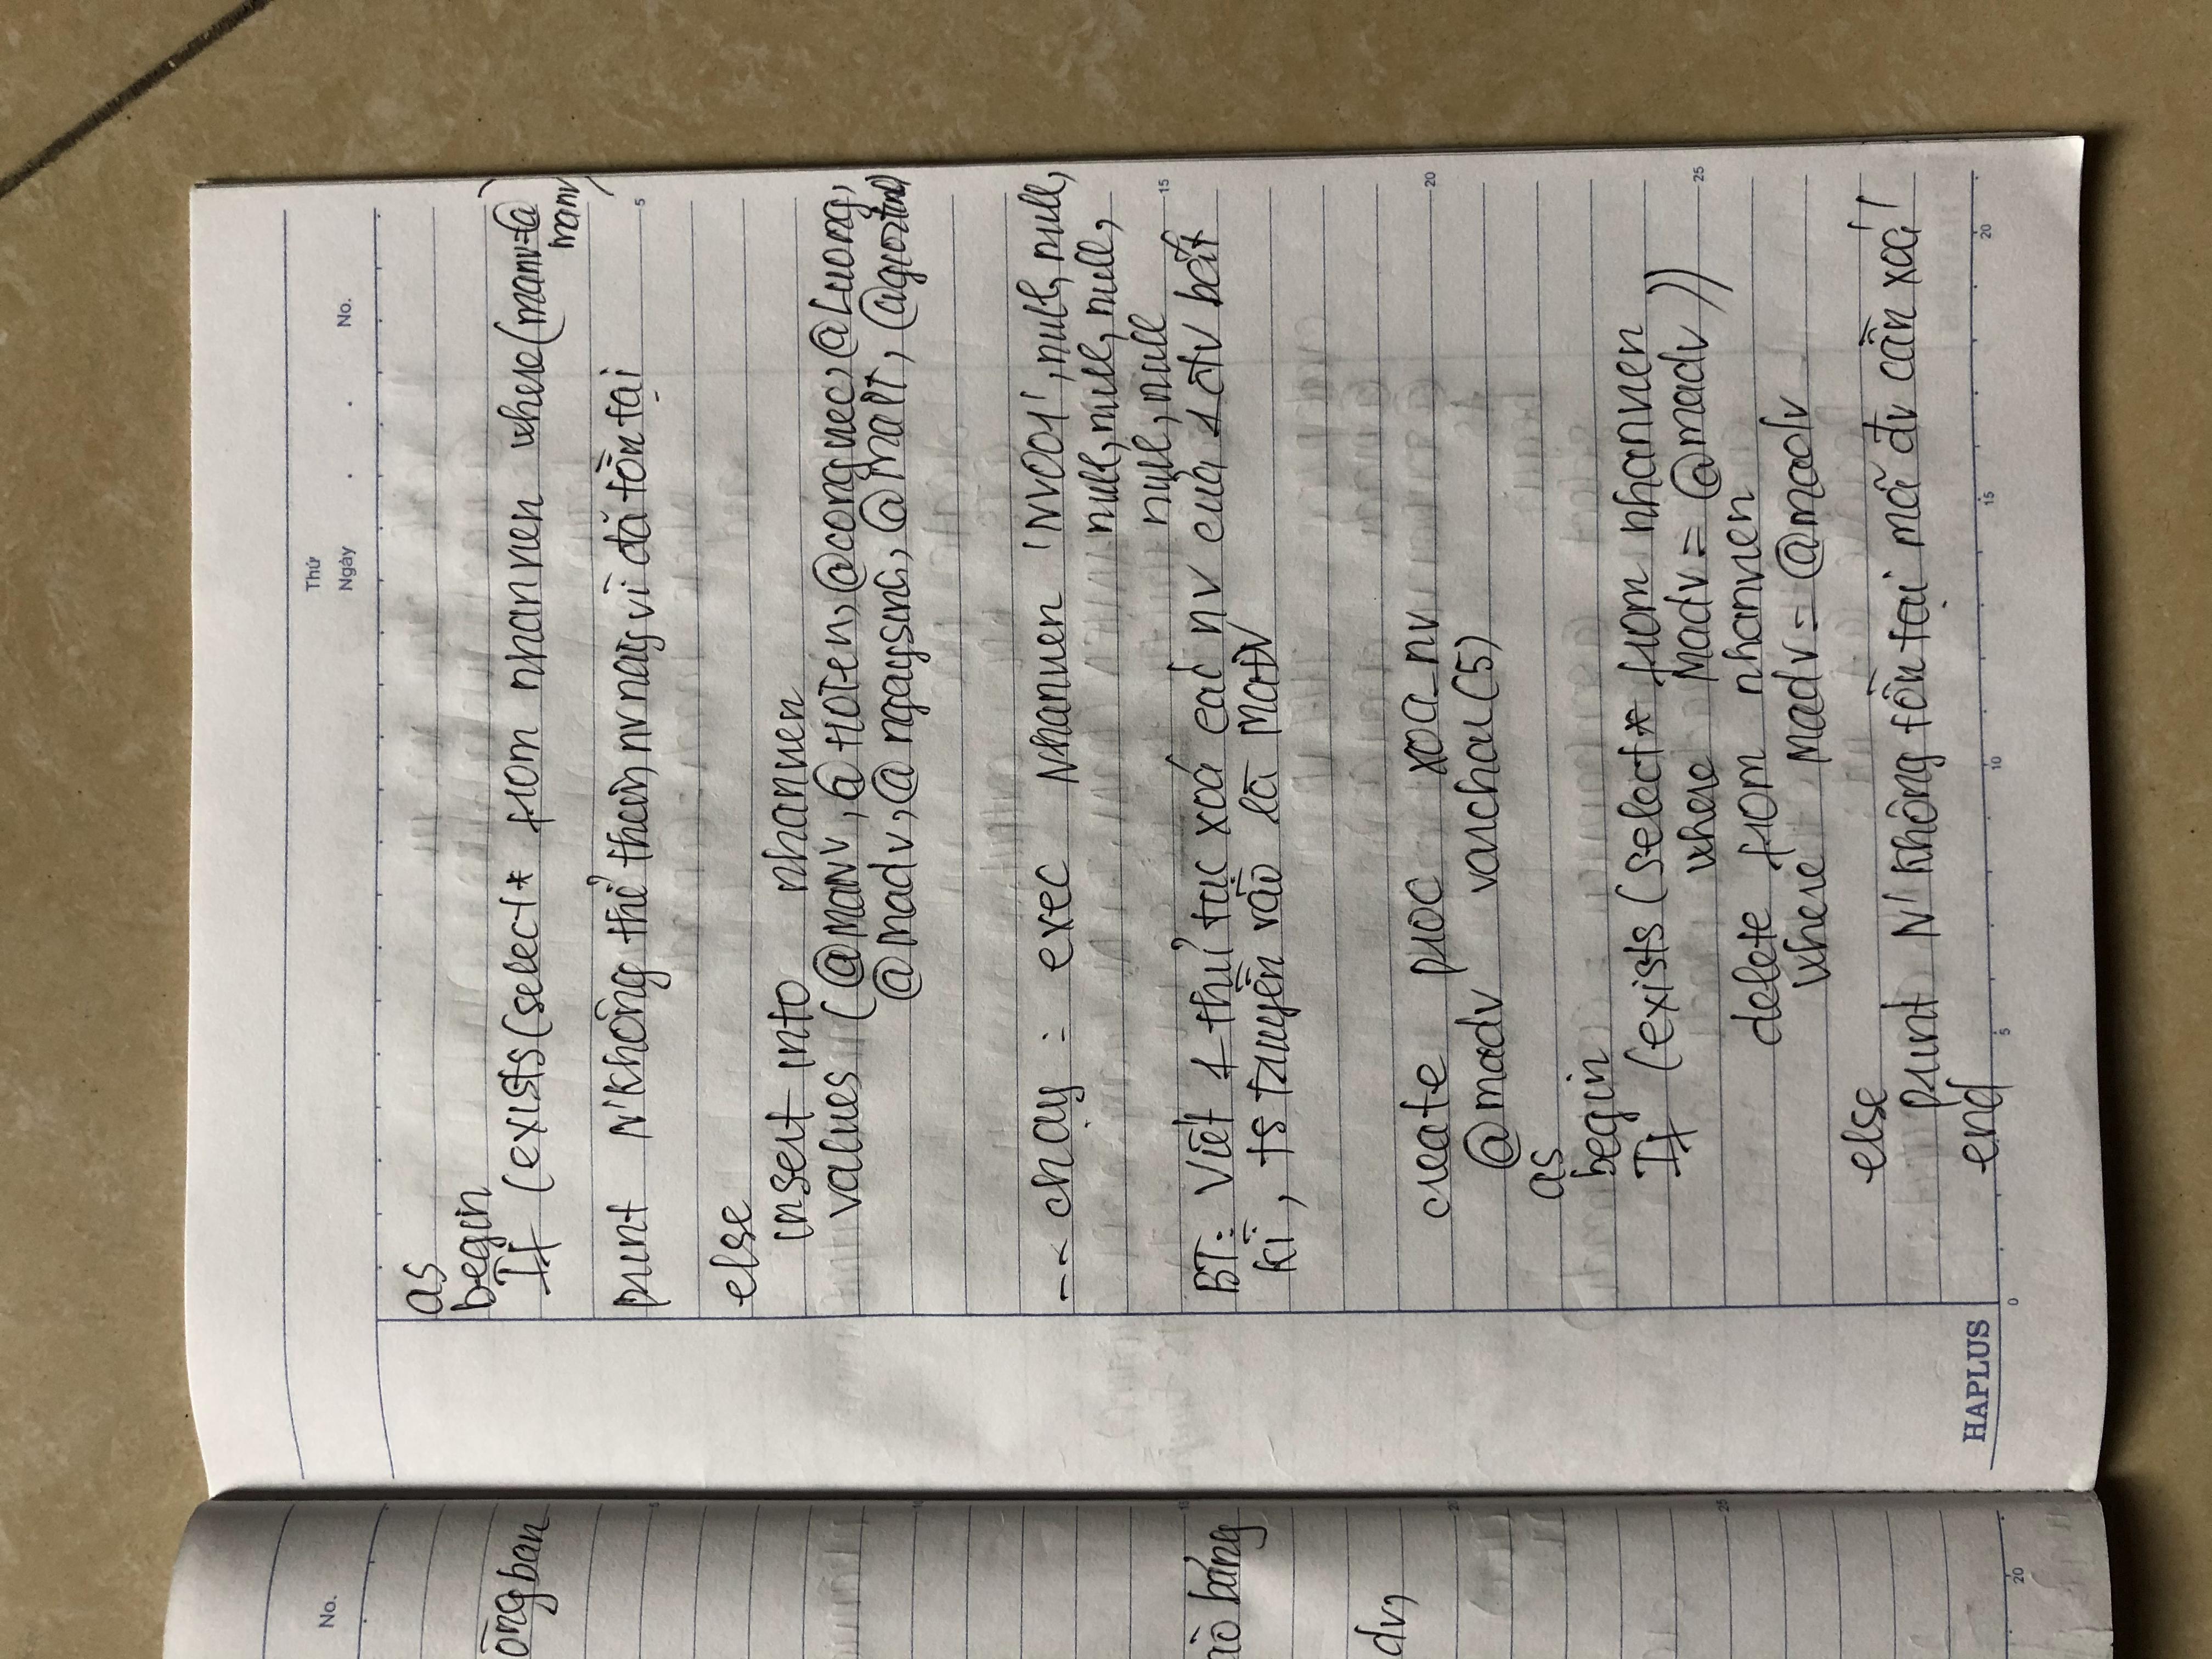 No.
òngban
ào bảng
dv,
20
Thứ
Ngày . . No.
as
begin
If (exists(select* from nhanvien where(manv=@
manv))
print N'Không thể thêm nv này vì đã tồn tại
5
else
insert into nhanvien
values (@MANV, @HOTEN, @congviec, @Luong,
@madv, @ngaysinh, @MaPT, @gioitinh)
-- chạy : exec Nhanvien 'NV001', null, null,
null, null, null,
null, null
15
BT: Viết 1 thủ tục xoá các nv của 1 đv bất
kì, ts truyền vào là MaĐV
create proc xoa_nv
20
@madv varchar(5)
as
begin
If (exists (select* from nhanvien
where Madv = @madv ))
25
delete from nhanvien
where Madv = @madv
else
print N'Không tồn tại mã đv cần xoá'
end
HAPLUS
0 5 10 15 20